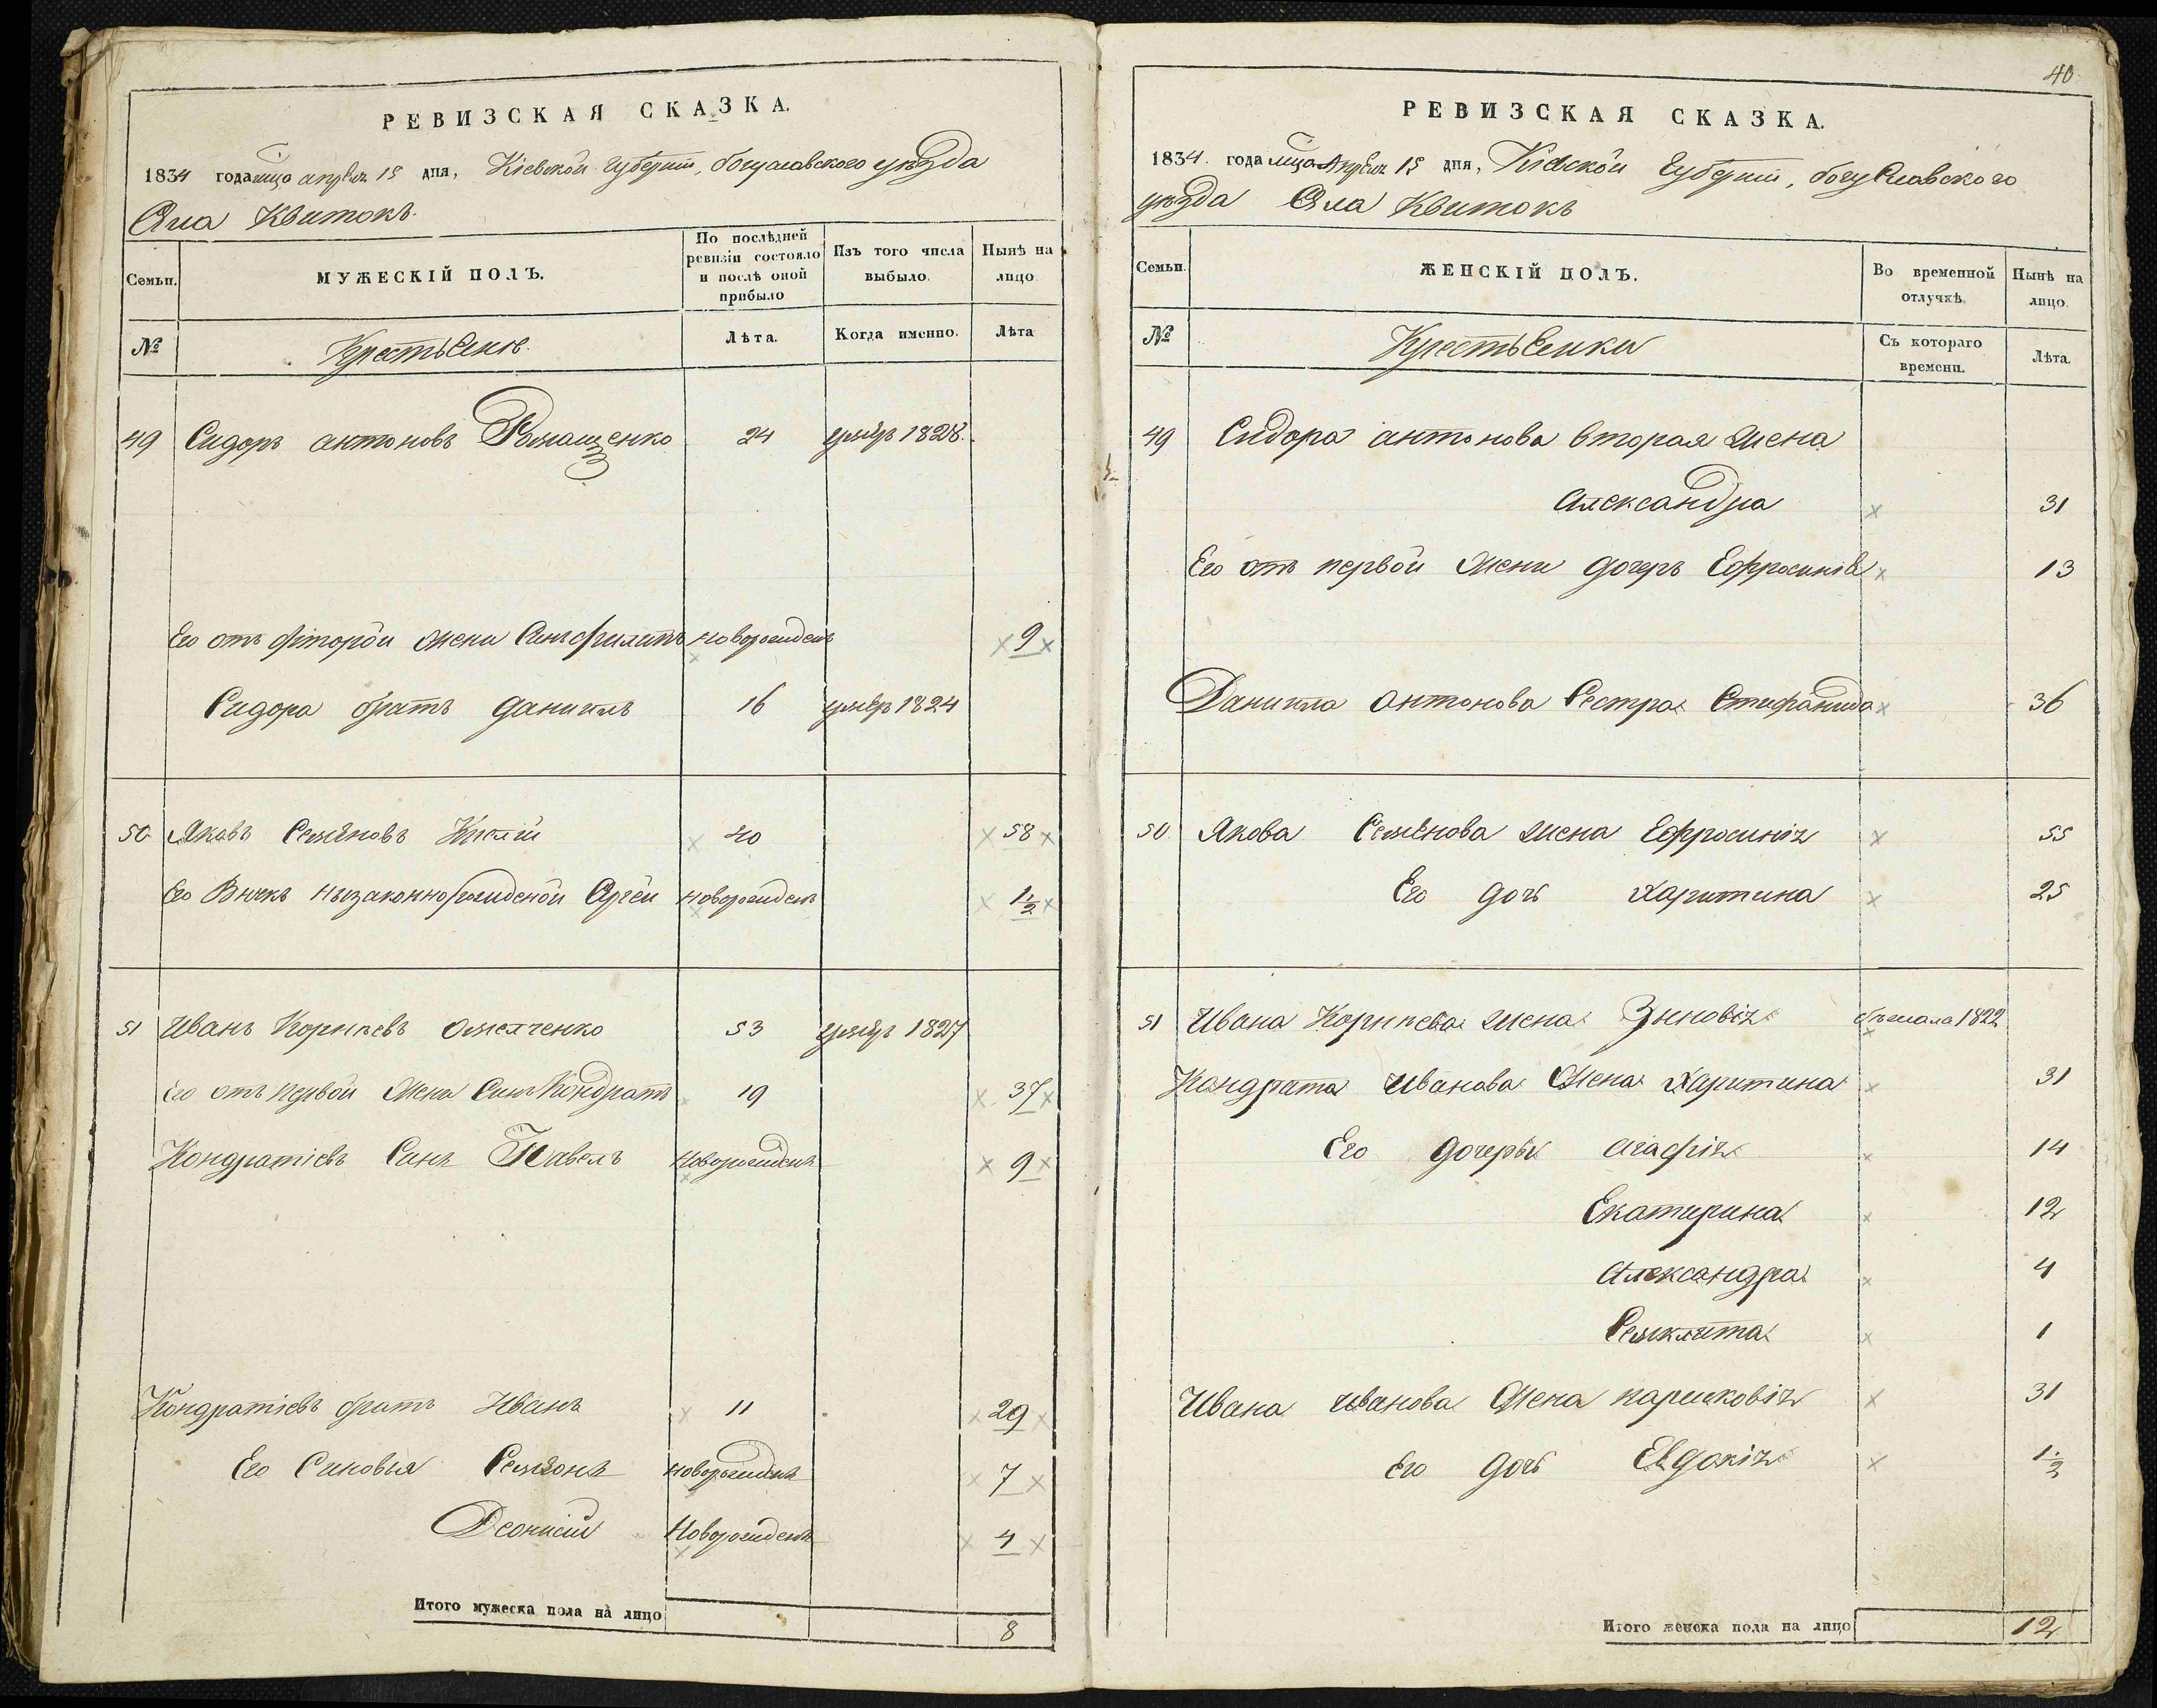 РЕВИЗСКАЯ СКАЗКА.
1834 года мца апреля 15 дня, Кіевской губерніи, богуславского уезда
Села Квитокъ.
Семьи. МУЖЕСКІЙ ПОЛЪ. По послѣдней ревизіи состояло и послѣ оной прибыло Изъ того числа выбыло. Нынѣ на лицо.
№ Крестьяне. Лѣта. Когда именно. Лѣта
49 Сидоръ антоновъ Ромащенко 24 умеръ 1828.
Его отъ второй жени Синъ Филипъ новорожденъ 9
Сидора братъ даниилъ 16 умеръ 1824
50 Яковъ Семеновъ 40 58
Его Внукъ незаконнорожденой Сергей новорожденъ 1/2
51 Иванъ Корнеевъ Омелченко 53 умеръ 1827
Его отъ первой жени Синъ Кондратъ 19 37
Кондратіевъ Синъ Павелъ новорожденъ 9
Кондратіевъ братъ Иванъ 11 29
Его Синовья Семионъ новорожденъ 7
Деонисій Новорожденъ 4
Итого мужеска пола на лицо 8
40
РЕВИЗСКАЯ СКАЗКА.
1834. года мца Апреля 15 дня, Кіевской Губерніи, богуславского
уезда Села Квитокъ
Семьи. ЖЕНСКІЙ ПОЛЪ. Во временной отлучкѣ. Нынѣ на лицо.
№ Крестьянки Съ котораго времени. Лѣта.
49 Сидора антонова вторая жена
Александра 31
Его отъ первой жени дочеръ Ефросинія 13
Даниила антонова Сестра Стефанида 36
50. Якова Семенова жена Ефросинія 55
Его дочь Харитина 25
51 Ивана Корнеева жена Зиновія бежала 1822
Кондрата Иванова жена Харитина 31
Его дочеры Агафія 14
Екатерина 12
Александра 4
Семклита 1
Ивана иванова жена парасковія 31
Его дочь Евдокія 1/2
Итого женска пола на лицо 12